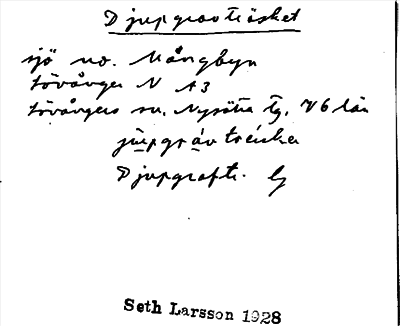 Djupgravträsket
sjö no. Mångbyn
Lövånger N A3
Lövångers sn. Nysätra tg. Vb län
jupgráv tréskə
Djupgraftr. G
Seth Larsson 1928